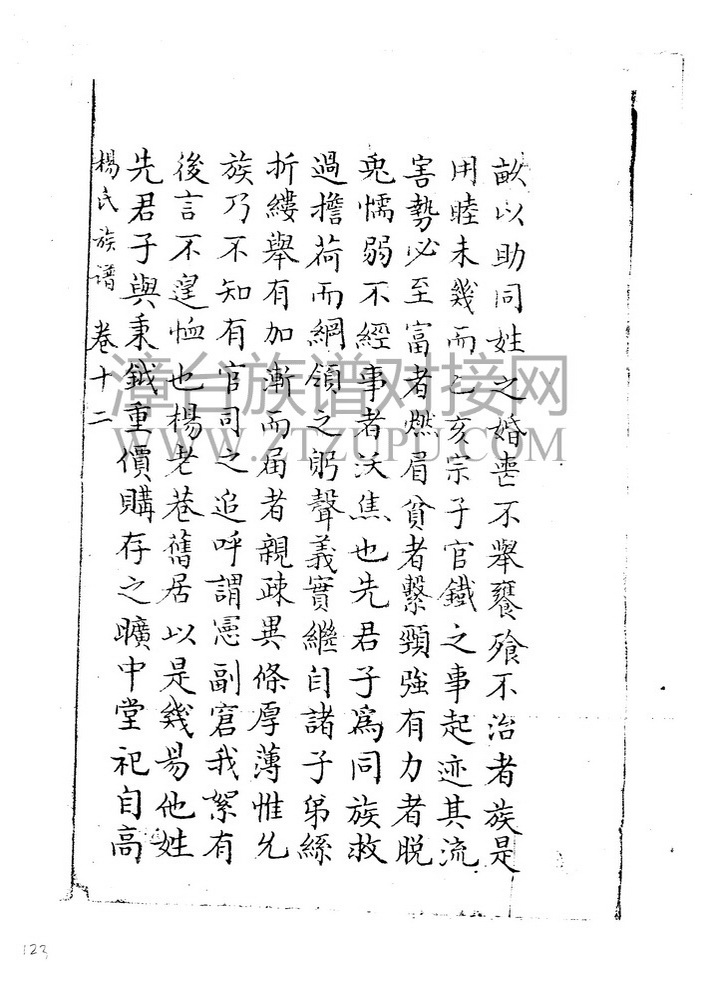 畝以助同姓之婚喪不舉饔飱不治者族是
用睦未幾而乙亥宗子官鐵之事起迹其流
害勢必至富者燃眉貧者繫頸強有力者脱
兎懦弱不經事者沃焦也先君子爲同族救
過擔荷而綱領之躬聲義實繼自諸子弟絲
折縷舉有加漸而届者親疎異條厚薄惟允
族乃不知有官司之追呼謂憲副窘我絮有
後言不遑恤也楊老巷舊居以是幾昜他姓
先君子與秉鉞重價購存之曠中堂祀自高
楊氏族谱 卷十二
漳台族谱对接网
WWW.ZTZUPU.COM
123